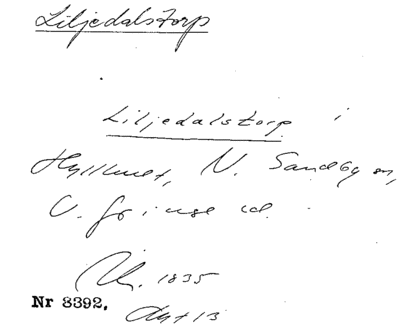 Liljedalstorp
Liljedalstorp i
Hyllhult, N. Sandby sn,
V. Göinge hd.
1835
Nr 3392.